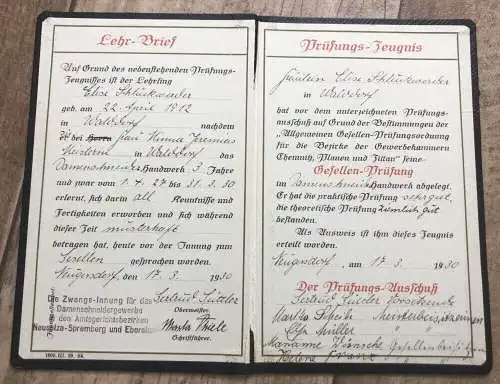 Lehr-Brief
Auf Grund des nebenstehenden Prüfungs-
Zeugnisses ist der Lehrling
Elise
geb. am 22. April 1912
in Walddorf nachdem
bei Herrn Frau Minna Jeremias
in Walddorf das
Damenschneider Handwerk 3 Jahre
und zwar vom 1.4.27 bis 31.3.30
erlernt, sich darin all Kenntnisse und
Fertigkeiten erworben und sich während
dieser Zeit musterhaft
betragen hat, heute vor der Innung zum
Gesellen gesprochen worden.
Neugersdorf, den 17. 3. 1930
Die Zwangs-Innung für das
Damenschneidergewerbe
den Amtsgerichtsbezirken
Neusalza-Spremberg und Ebersbach
Obermeister.
Martha Thiele
Schriftführer.
Prüfungs-Zeugnis
Fräulein Elise
in Walddorf
hat vor dem unterzeichneten Prüfungs-
ausschuß auf Grund der Bestimmungen der
"Allgemeinen Gesellen-Prüfungsordnung
für die Bezirke der Gewerbekammern
Chemnitz, Plauen und Zittau" seine
Gesellen-Prüfung
im Damenschneider Handwerk abgelegt.
Er hat die praktische Prüfung sehr gut,
die theoretische Prüfung ziemlich gut
bestanden.
Als Ausweis ist ihm dieses Zeugnis
erteilt worden.
Neugersdorf, am 17. 3. 1930
Der Prüfungs-Ausschuß
Vorsitzende
Martha Meisterbeisitzerinnen
Müller
Marianne Wünsche Gesellenbeisitzerin
Helene Franz